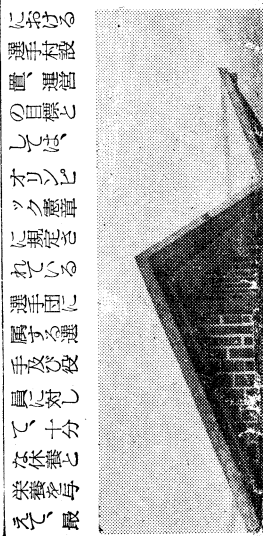 における
選手村設
置、運営
の目標と
しては、
オリンピ
ック憲章
に規定さ
れている
選手団に
属する選
手及び役
員に対し
て、十分
な休養と
栄養を与
えて、最